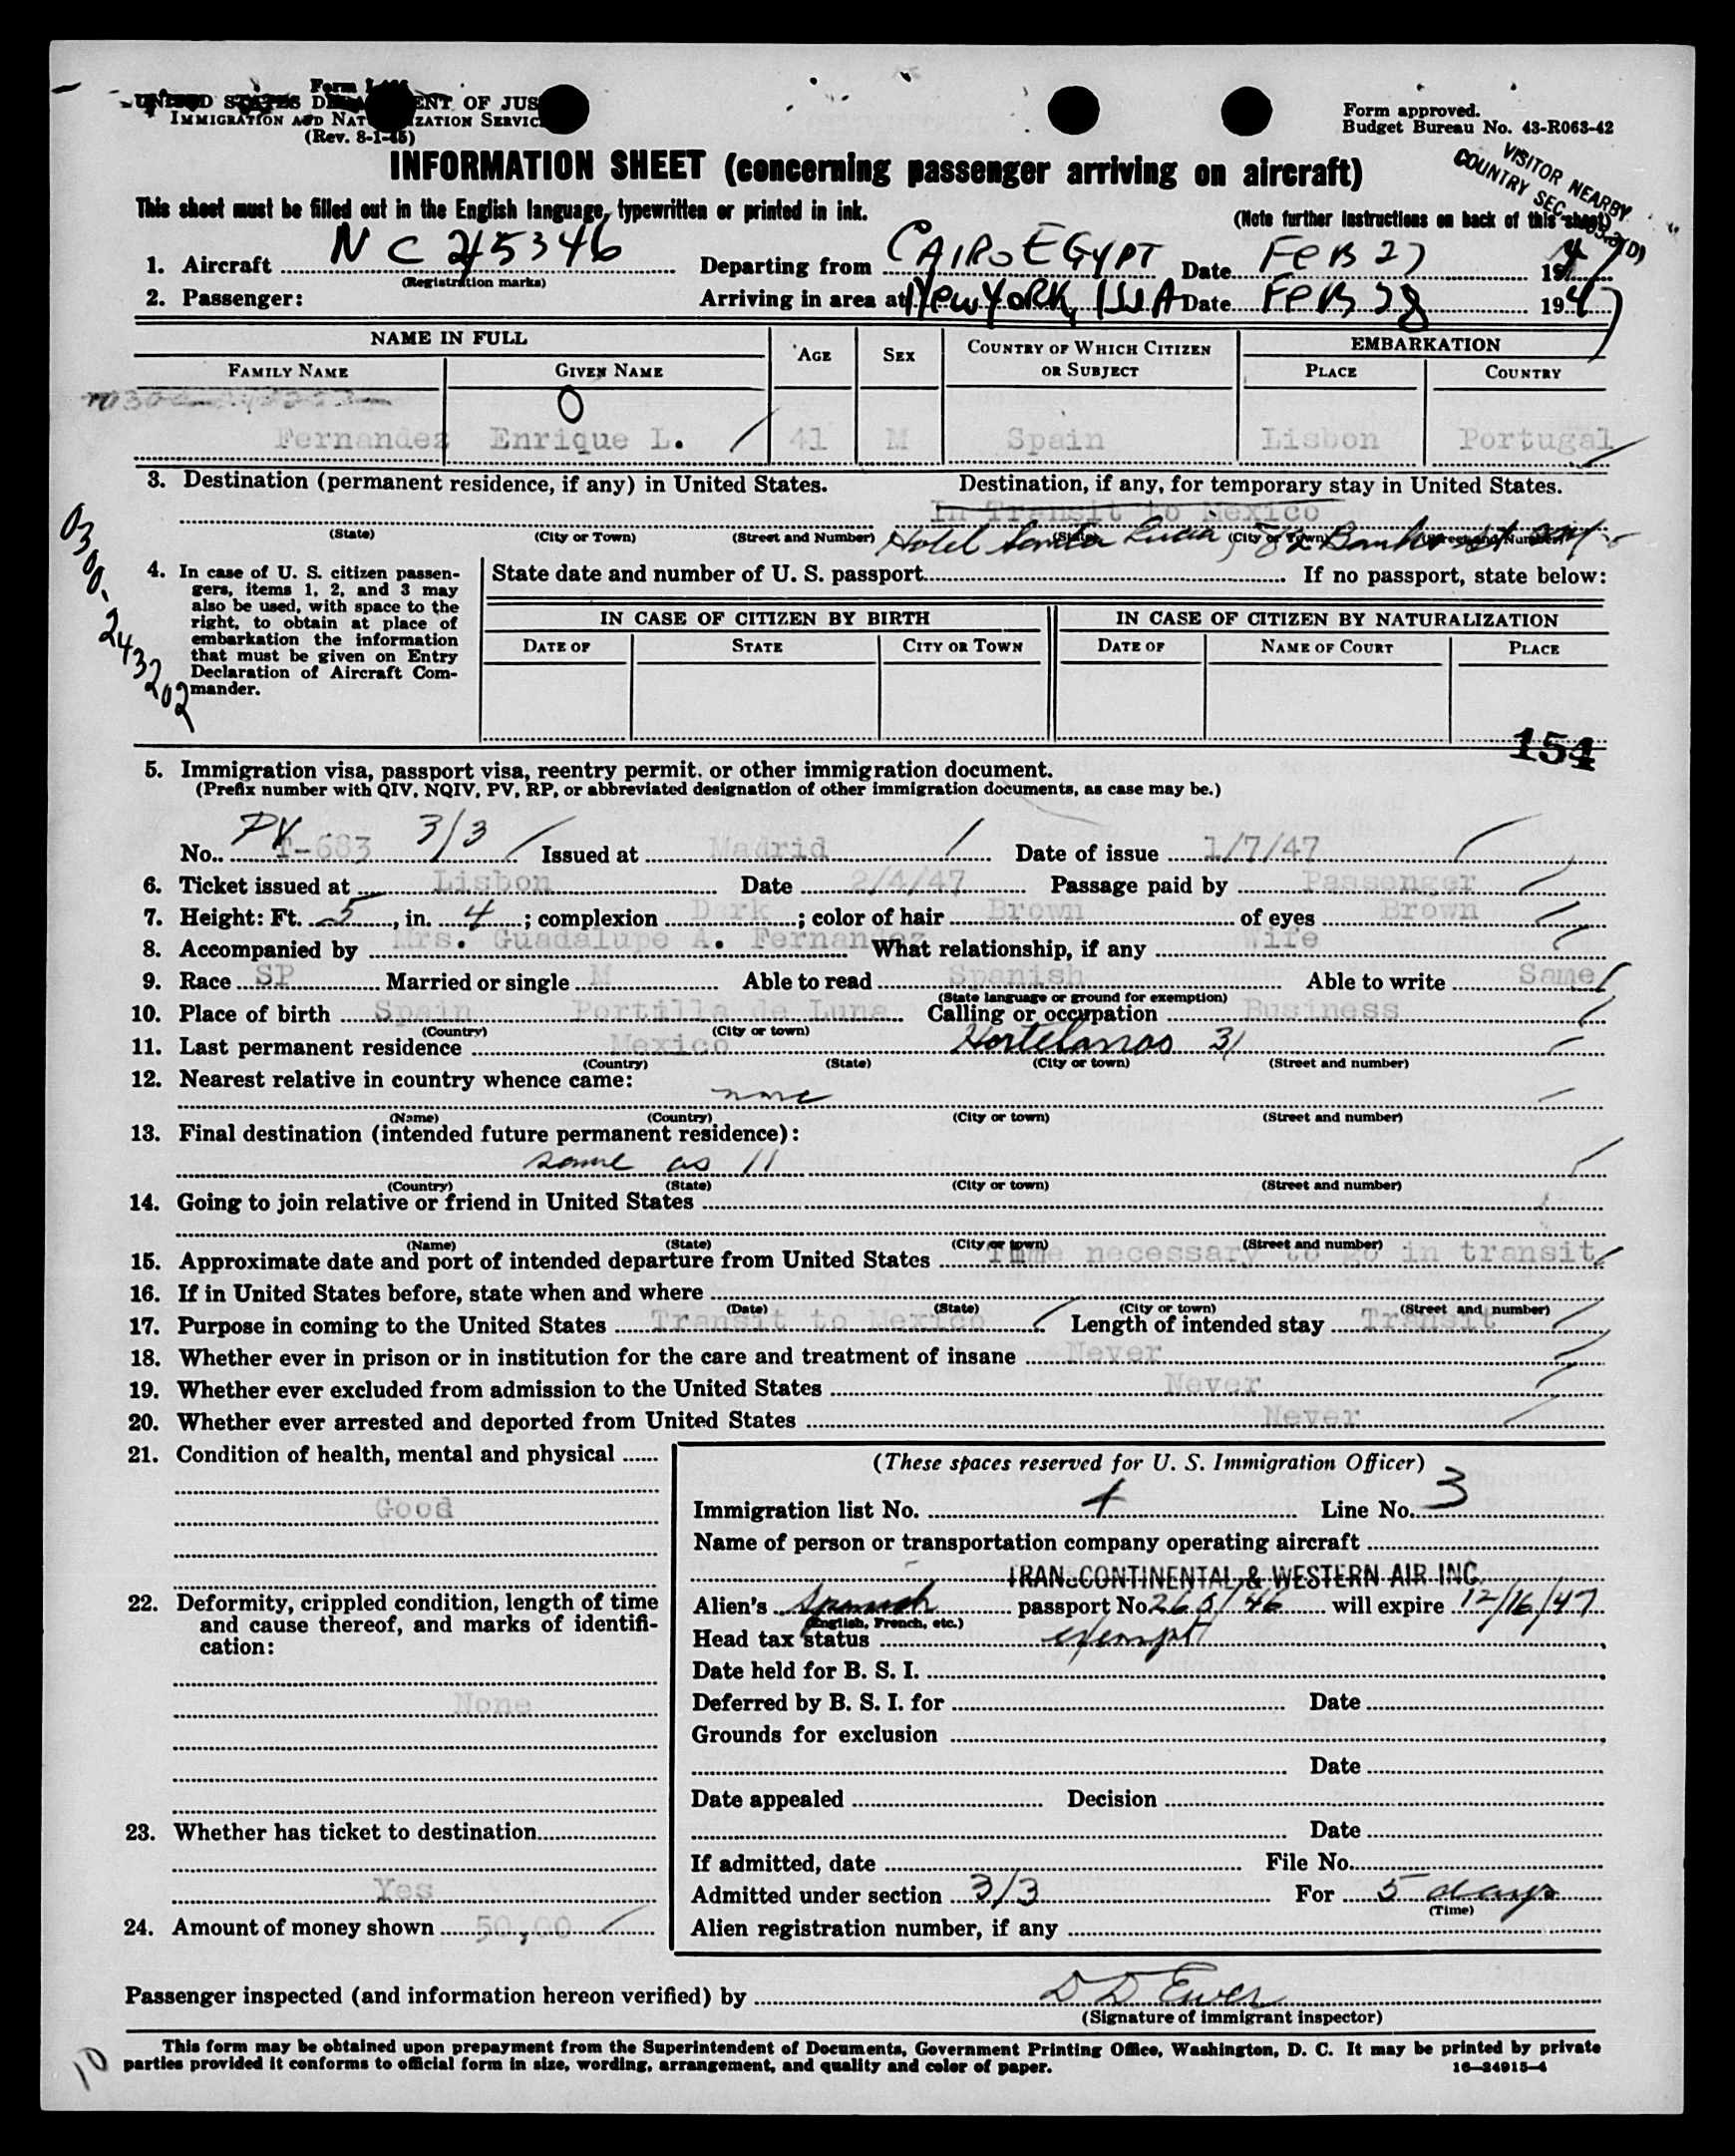 Form I-
UNITED STATES DEPARTMENT OF JUSTICE
IMMIGRATION AND NATURALIZATION SERVICE
(Rev. 8-1-45)
Form approved.
Budget Bureau No. 43-R063-42
VISITOR NEARBY
COUNTRY SEC.
INFORMATION SHEET (concerning passenger arriving on aircraft)
This sheet must be filled out in the English language, typewritten or printed in ink.
(Note further instructions on back of this sheet)
1. Aircraft NC 45346 Departing from CAIRO EGYPT Date FEB 27 1947
(Registration marks)
2. Passenger: Arriving in area at New York, Date FEB 28 1947
NAME IN FULL AGE SEX COUNTRY OF WHICH CITIZEN OR SUBJECT EMBARKATION
FAMILY NAME GIVEN NAME PLACE COUNTRY
Fernandez Enrique L. 41 M Spain Lisbon Portugal
3. Destination (permanent residence, if any) in United States. Destination, if any, for temporary stay in United States.
In Transit to Mexico
Hotel Santa Lucia,
(State) (City or Town) (Street and Number) (State) (City or Town) (Street and Number)
0300-243202
4. In case of U. S. citizen passengers, items 1, 2, and 3 may also be used, with space to the right, to obtain at place of embarkation the information that must be given on Entry Declaration of Aircraft Commander.
State date and number of U. S. passport If no passport, state below:
IN CASE OF CITIZEN BY BIRTH IN CASE OF CITIZEN BY NATURALIZATION
DATE OF STATE CITY OR TOWN DATE OF NAME OF COURT PLACE
154
5. Immigration visa, passport visa, reentry permit, or other immigration document.
(Prefix number with QIV, NQIV, PV, RP, or abbreviated designation of other immigration documents, as case may be.)
No. PV T-683 3/3 Issued at Madrid Date of issue 1/7/47
6. Ticket issued at Lisbon Date 2/4/47 Passage paid by Passenger
7. Height: Ft. 5, in. 4; complexion Dark; color of hair Brown of eyes Brown
8. Accompanied by Mrs. Guadalupe A. Fernandez What relationship, if any Wife
9. Race SP Married or single M Able to read Spanish Able to write Same
(State language or ground for exemption)
10. Place of birth Spain Portilla de Luna Calling or occupation Business
(Country) (City or town)
11. Last permanent residence Mexico Hortelanos 31
(Country) (State) (City or town) (Street and number)
12. Nearest relative in country whence came:
none
(Name) (Country) (City or town) (Street and number)
13. Final destination (intended future permanent residence):
same as 11
(Country) (State) (City or town) (Street and number)
14. Going to join relative or friend in United States
(Name) (State) (City or town) (Street and number)
15. Approximate date and port of intended departure from United States Time necessary to go in transit
16. If in United States before, state when and where
(Date) (State) (City or town) (Street and number)
17. Purpose in coming to the United States Transit to Mexico Length of intended stay Transit
18. Whether ever in prison or in institution for the care and treatment of insane Never
19. Whether ever excluded from admission to the United States Never
20. Whether ever arrested and deported from United States Never
21. Condition of health, mental and physical
Good
22. Deformity, crippled condition, length of time and cause thereof, and marks of identification:
None
23. Whether has ticket to destination
Yes
24. Amount of money shown 50,00
(These spaces reserved for U. S. Immigration Officer)
Immigration list No. 4 Line No. 3
Name of person or transportation company operating aircraft
TRANSCONTINENTAL & WESTERN AIR INC.
Alien's Spanish passport No. 265/46 will expire 12/16/47
(English, French, etc.)
Head tax status exempt
Date held for B. S. I.
Deferred by B. S. I. for Date
Grounds for exclusion
Date
Date appealed Decision
Date
If admitted, date File No.
Admitted under section 3/3 For 5 days
(Time)
Alien registration number, if any
Passenger inspected (and information hereon verified) by D D Ewer
(Signature of immigrant inspector)
This form may be obtained upon prepayment from the Superintendent of Documents, Government Printing Office, Washington, D. C. It may be printed by private
parties provided it conforms to official form in size, wording, arrangement, and quality and color of paper. 16—24915-4
10